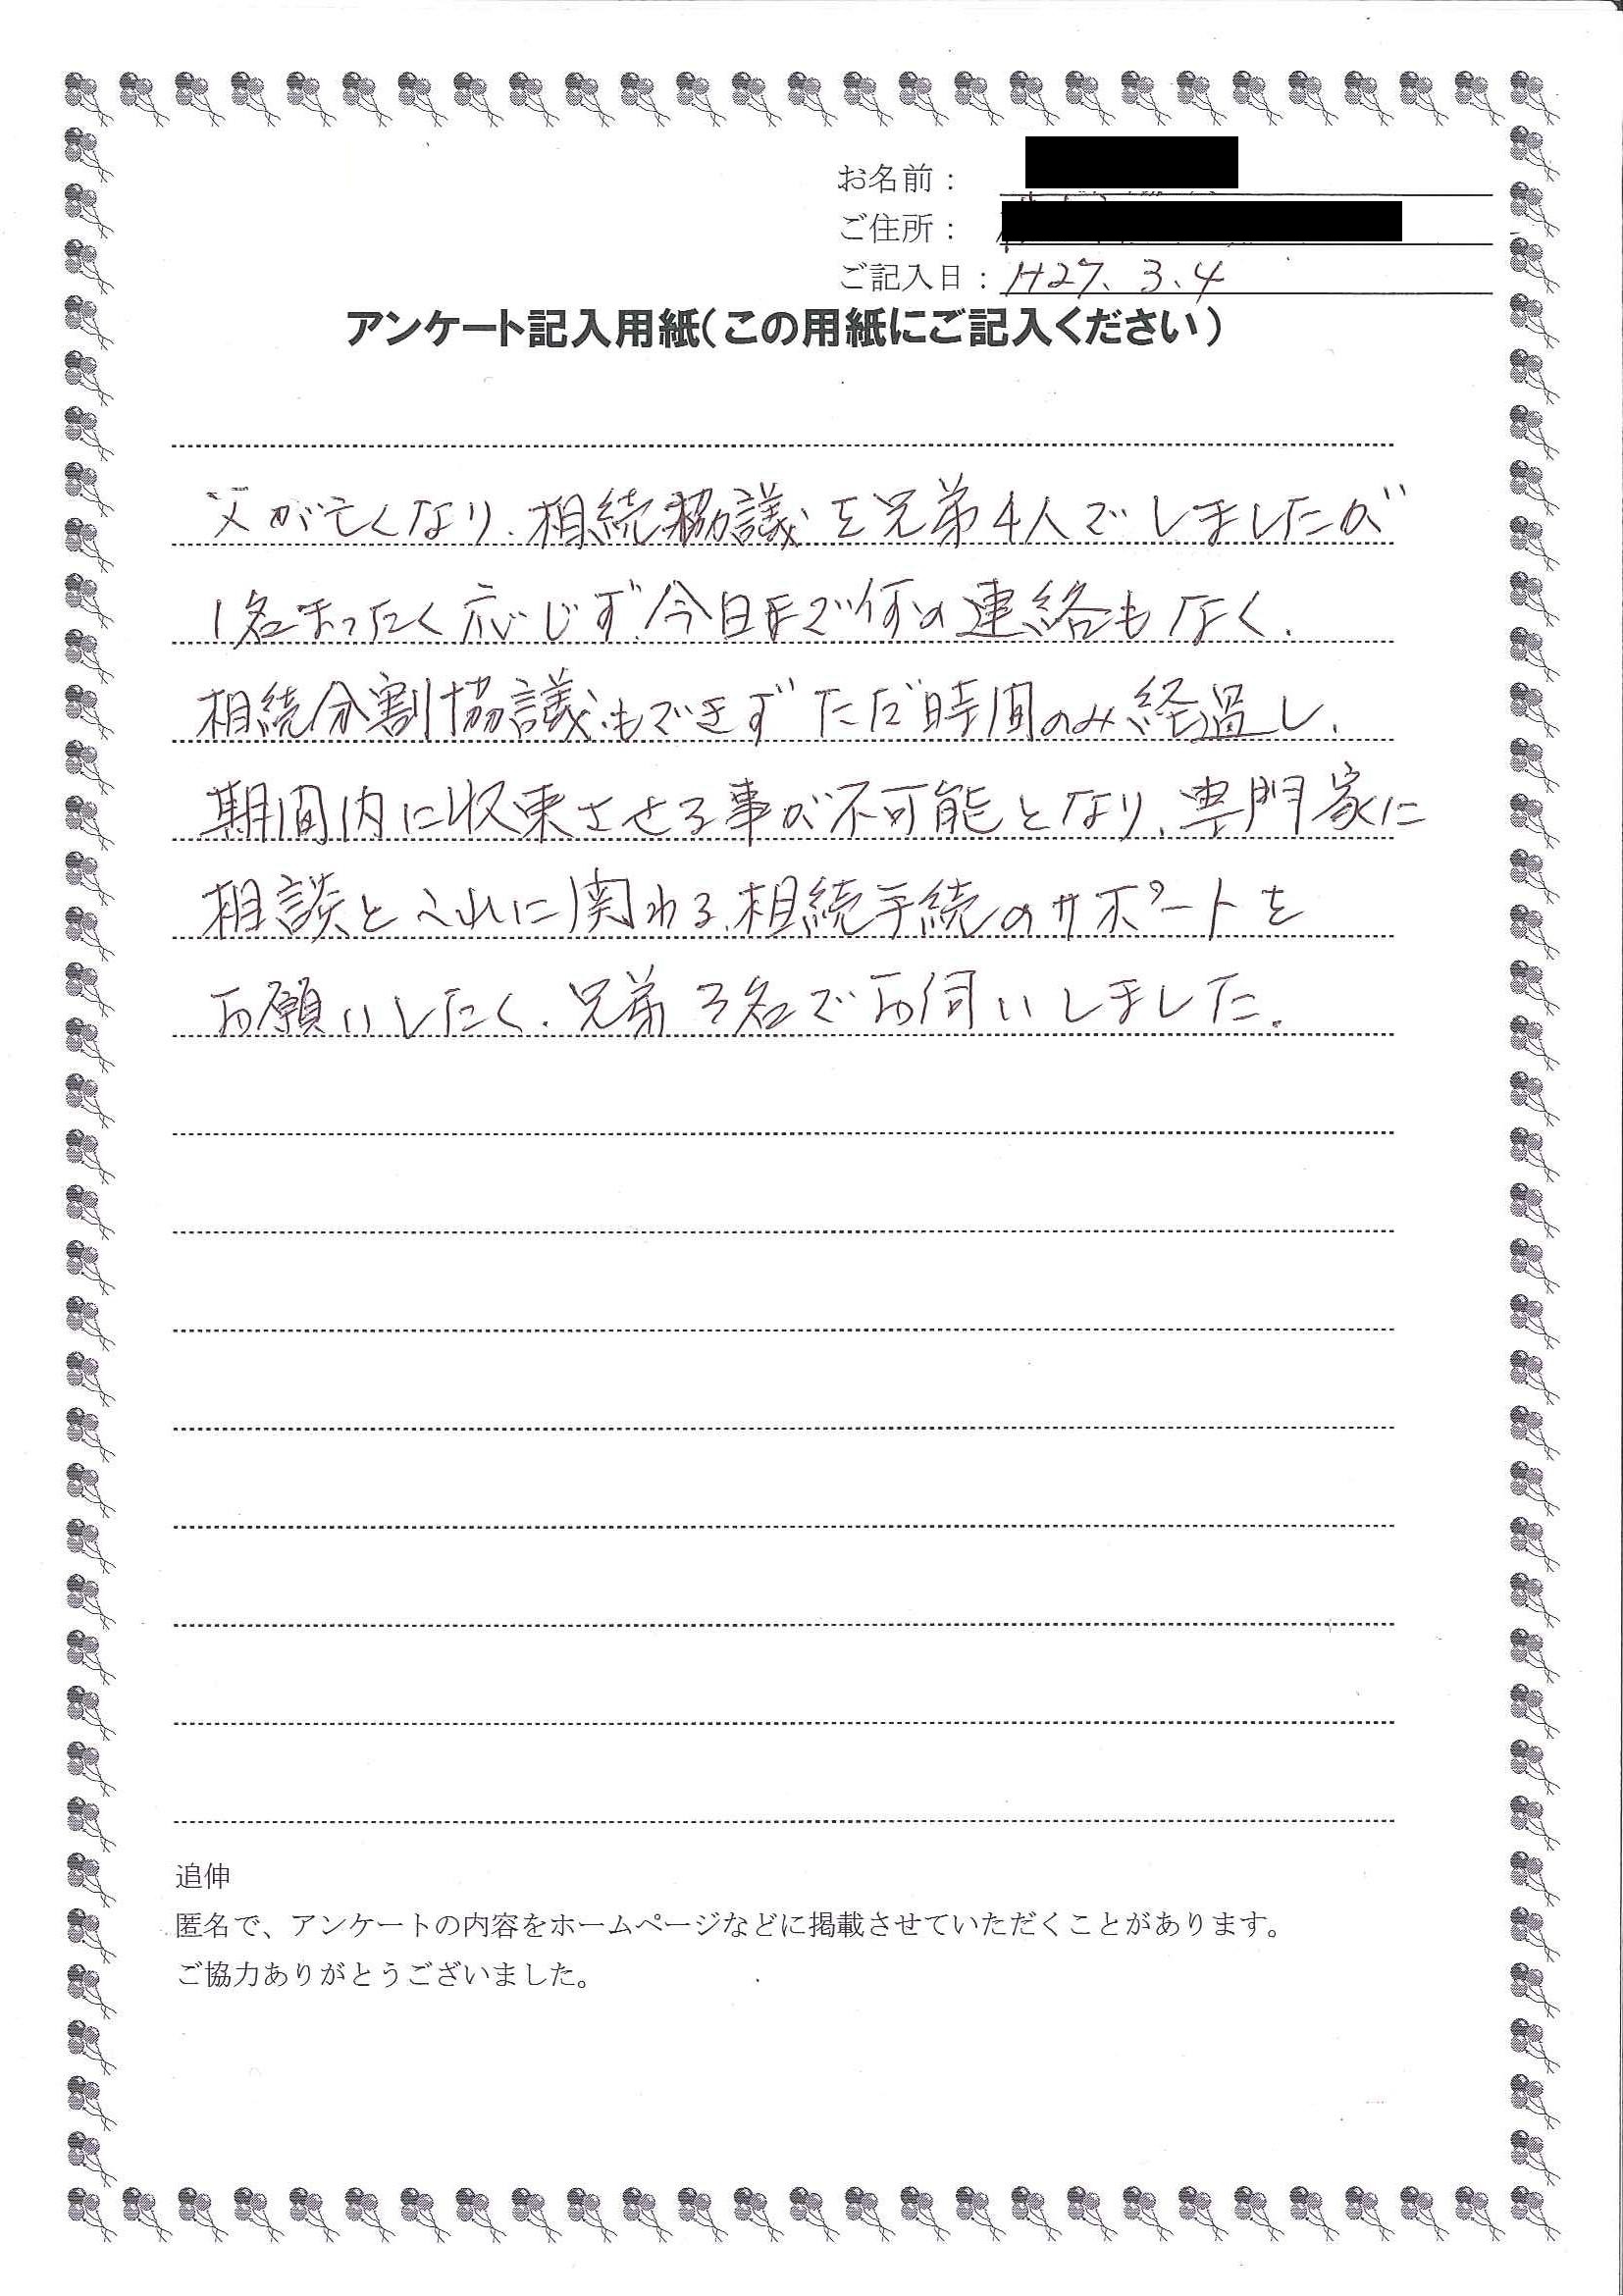 お名前：
ご住所：
ご記入日：H27.3.4
アンケート記入用紙（この用紙にご記入ください）
父が亡くなり、相続協議を兄弟4人でしましたが
1名まったく応じず、今日まで何の連絡もなく、
相続分割協議もできずただ時間のみ経過し、
期間内に収束させる事が不可能となり、専門家に
相談とそれに関わる、相続手続のサポートを
お願いしたく、兄弟3名でお伺いしました。
追伸
匿名で、アンケートの内容をホームページなどに掲載させていただくことがあります。
ご協力ありがとうございました。